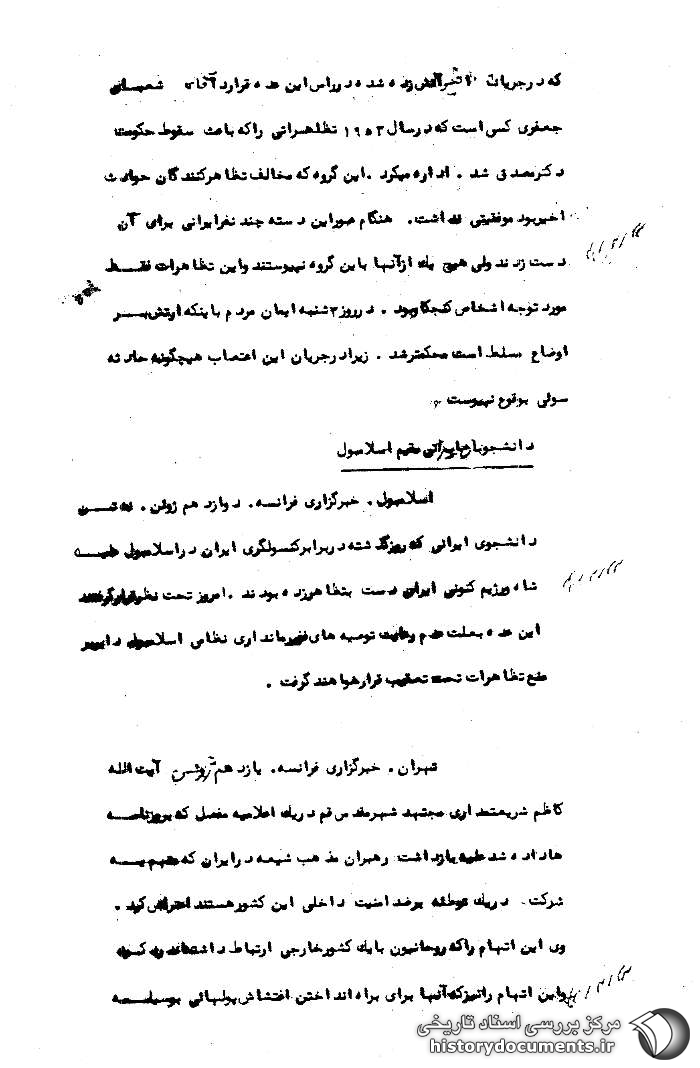 که در جریان آتش زده شده در راس این عده قرارداد آقای شعبان
جعفری کسی است که در سال ۱۹۵۳ تظاهراتی راکه باعث سقوط حکومت
دکتر مصدق شد . اداره میکرد . این گروه که مخالف تظاهرکنندگان حوادث
اخیر بود موفقیتی نداشت . هنگام عبور این دسته چند نفر ایرانی برای آن
دست زدند ولی هیچ یک از آنها باین گروه نپیوستند و این تظاهرات فقط
مورد توجه اشخاص کنجکاو بود . در روز ۳ شنبه ایمان مردم باینکه ارتش بر
اوضاع مسلط است محکمتر شد . زیرا در جریان این اعتصاب هیچگونه حادثه
سوئی بوقوع نپیوست .
دانشجویان ایرانی مقیم اسلامبول
اسلامبول . خبرگزاری فرانسه . دوازدهم ژوئن . نه تن
دانشجوی ایرانی که روز گذشته در برابر کنسولگری ایران در اسلامبول علیه
شاه و رژیم کنونی ایران دست بتظاهر زده بودند . امروز تحت نظر قرار گرفتند
این عده بعلت عدم رعایت توصیه های فرمانداری نظامی اسلامبول دایر بر
منع تظاهرات تحت تعقیب قرار خواهند گرفت .
تهران . خبرگزاری فرانسه . یازدهم ژوئن آیت الله
کاظم شریعتمداری مجتهد شهر مقدس قم در یک اعلامیه مفصل که بروزنامه
ها داده شد علیه بازداشت رهبران مذهب شیعه در ایران که متهم به
شرکت در یک توطئه بر ضد امنیت داخلی این کشور هستند اعتراض کرد .
وی این اتهام راکه روحانیون بایک کشور خارجی ارتباط داشته اند رد کرد
و این اتهام را نیز که آنها برای براه انداختن اغتشاش پولهائی بوسیله
مرکز بررسی اسناد تاریخی
historydocuments.ir